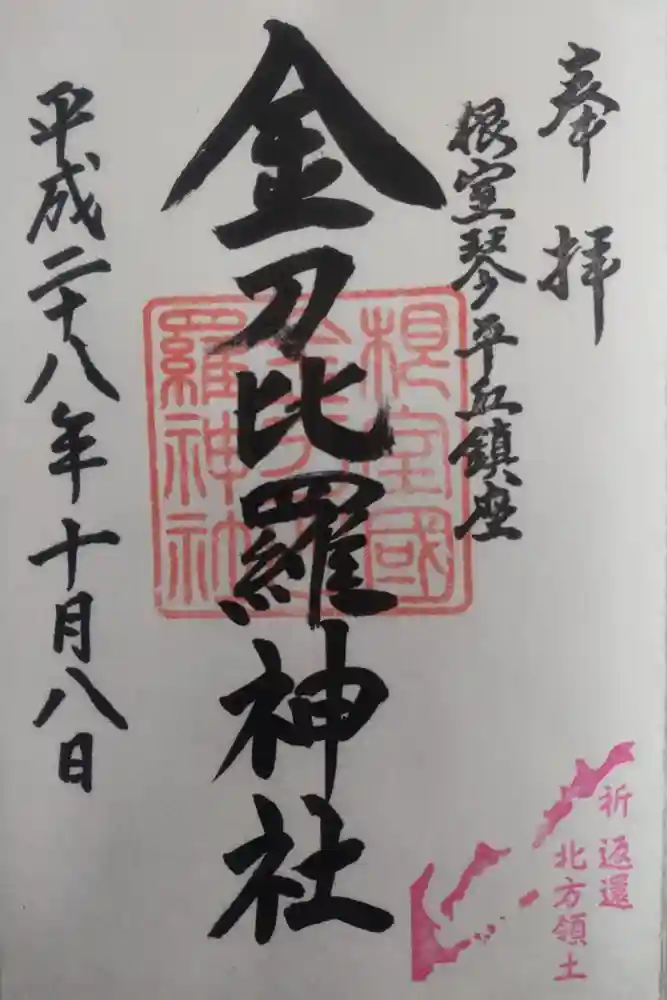 奉拝
根室琴平丘鎮座
金刀比羅神社
根室國
金刀比
羅神社
平成二十八年十月八日
祈 返還
北方領土